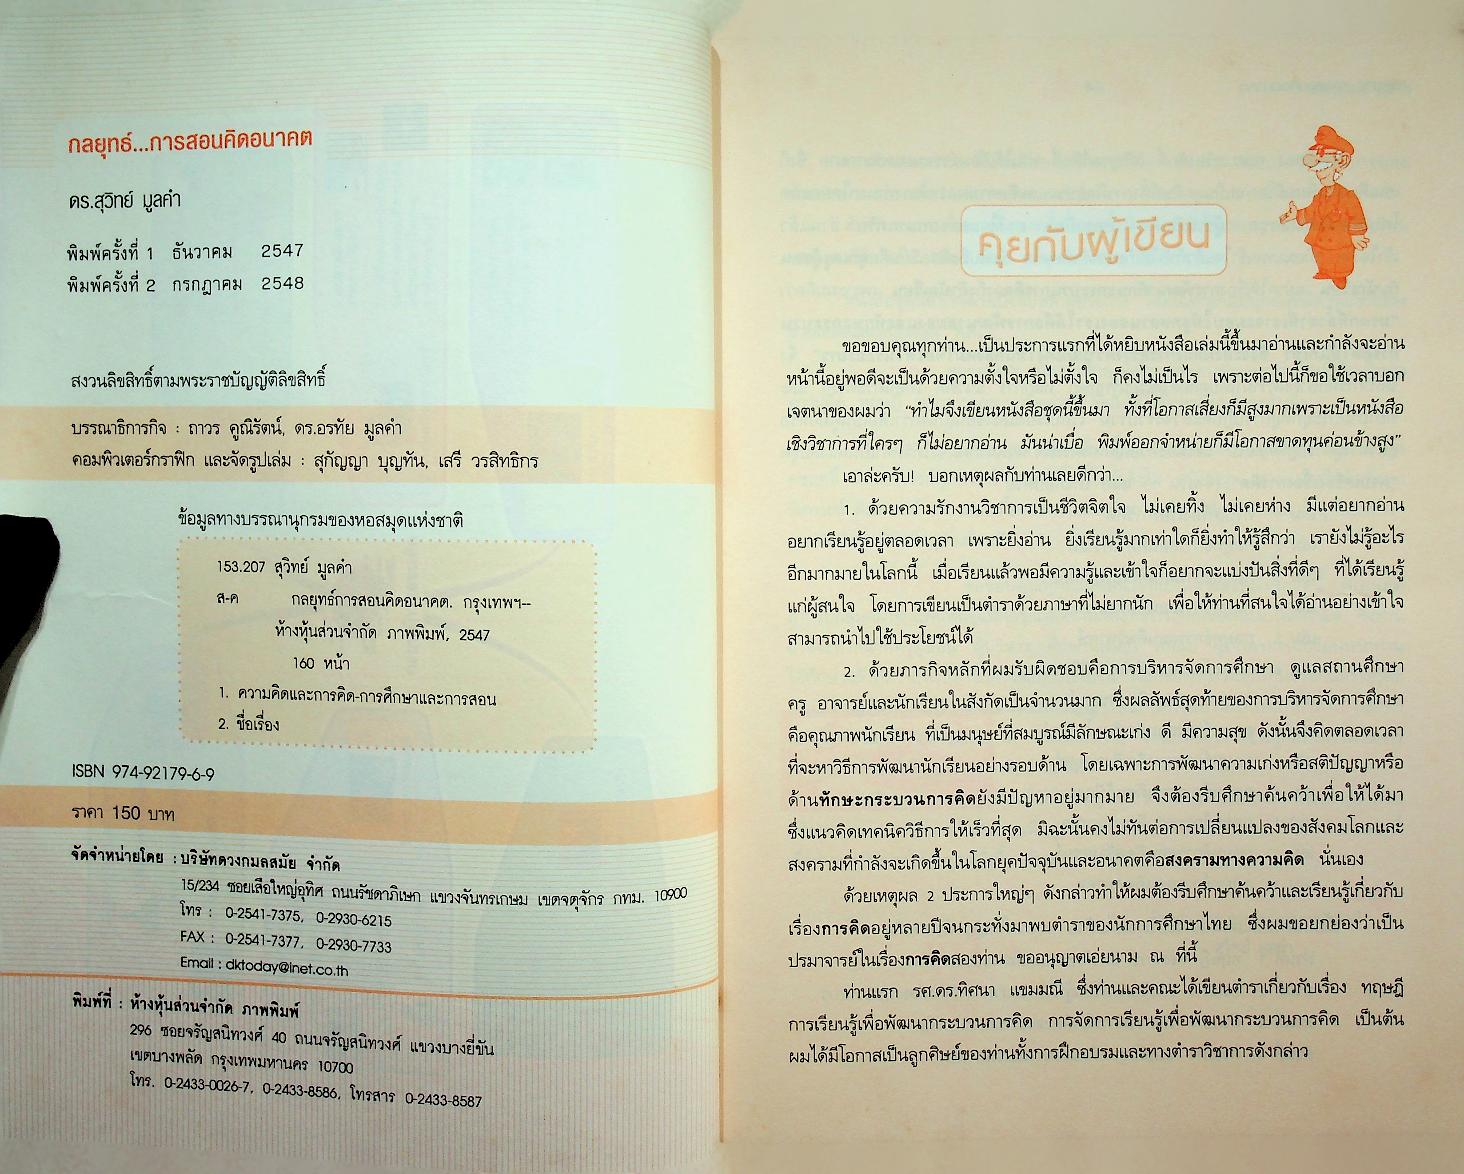 กลยุทธ์...การสอนคิดอนาคต
ดร.สุวิทย์ มูลคำ
พิมพ์ครั้งที่ 1 ธันวาคม 2547
พิมพ์ครั้งที่ 2 กรกฎาคม 2548
สงวนลิขสิทธิ์ตามพระราชบัญญัติลิขสิทธิ์
บรรณาธิการกิจ : ถาวร คูณิรัตน์, ดร.อรทัย มูลคำ
คอมพิวเตอร์กราฟิก และจัดรูปเล่ม : สุกัญญา บุญทัน, เสรี วรสิทธิกร
ข้อมูลทางบรรณานุกรมของหอสมุดแห่งชาติ
153.207 สุวิทย์ มูลคำ
ส-ค กลยุทธ์การสอนคิดอนาคต. กรุงเทพฯ--
ห้างหุ้นส่วนจำกัด ภาพพิมพ์, 2547
160 หน้า
1. ความคิดและการคิด-การศึกษาและการสอน
2. ชื่อเรื่อง
ISBN 974-92179-6-9
ราคา 150 บาท
จัดจำหน่ายโดย : บริษัทดวงกมลสมัย จำกัด
15/234 ซอยเสือใหญ่อุทิศ ถนนรัชดาภิเษก แขวงจันทรเกษม เขตจตุจักร กทม. 10900
โทร : 0-2541-7375, 0-2930-6215
FAX : 0-2541-7377, 0-2930-7733
Email : dktoday@inet.co.th
พิมพ์ที่ : ห้างหุ้นส่วนจำกัด ภาพพิมพ์
296 ซอยจรัญสนิทวงศ์ 40 ถนนจรัญสนิทวงศ์ แขวงบางยี่ขัน
เขตบางพลัด กรุงเทพมหานคร 10700
โทร. 0-2433-0026-7, 0-2433-8586, โทรสาร 0-2433-8587
คุยกับผู้เขียน
ขอขอบคุณทุกท่าน...เป็นประการแรกที่ได้หยิบหนังสือเล่มนี้ขึ้นมาอ่านและกำลังจะอ่าน
หน้านี้อยู่พอดีจะเป็นด้วยความตั้งใจหรือไม่ตั้งใจ ก็คงไม่เป็นไร เพราะต่อไปนี้ก็ขอใช้เวลาบอก
เจตนาของผมว่า "ทำไมจึงเขียนหนังสือชุดนี้ขึ้นมา ทั้งที่โอกาสเสี่ยงก็มีสูงมากเพราะเป็นหนังสือ
เชิงวิชาการที่ใครๆ ก็ไม่อยากอ่าน มันน่าเบื่อ พิมพ์ออกจำหน่ายก็มีโอกาสขาดทุนค่อนข้างสูง"
เอาล่ะครับ! บอกเหตุผลกับท่านเลยดีกว่า...
1. ด้วยความรักงานวิชาการเป็นชีวิตจิตใจ ไม่เคยทิ้ง ไม่เคยห่าง มีแต่อยากอ่าน
อยากเรียนรู้อยู่ตลอดเวลา เพราะยิ่งอ่าน ยิ่งเรียนรู้มากเท่าใดก็ยิ่งทำให้รู้สึกว่า เรายังไม่รู้อะไร
อีกมากมายในโลกนี้ เมื่อเรียนแล้วพอมีความรู้และเข้าใจก็อยากจะแบ่งปันสิ่งที่ดีๆ ที่ได้เรียนรู้
แก่ผู้สนใจ โดยการเขียนเป็นตำราด้วยภาษาที่ไม่ยากนัก เพื่อให้ท่านที่สนใจได้อ่านอย่างเข้าใจ
สามารถนำไปใช้ประโยชน์ได้
2. ด้วยภารกิจหลักที่ผมรับผิดชอบคือการบริหารจัดการศึกษา ดูแลสถานศึกษา
ครู อาจารย์และนักเรียนในสังกัดเป็นจำนวนมาก ซึ่งผลลัพธ์สุดท้ายของการบริหารจัดการศึกษา
คือคุณภาพนักเรียน ที่เป็นมนุษย์ที่สมบูรณ์มีลักษณะเก่ง ดี มีความสุข ดังนั้นจึงคิดตลอดเวลา
ที่จะหาวิธีการพัฒนานักเรียนอย่างรอบด้าน โดยเฉพาะการพัฒนาความเก่งหรือสติปัญญาหรือ
ด้านทักษะกระบวนการคิดยังมีปัญหาอยู่มากมาย จึงต้องรีบศึกษาค้นคว้าเพื่อให้ได้มา
ซึ่งแนวคิดเทคนิควิธีการให้เร็วที่สุด มิฉะนั้นคงไม่ทันต่อการเปลี่ยนแปลงของสังคมโลกและ
สงครามที่กำลังจะเกิดขึ้นในโลกยุคปัจจุบันและอนาคตคือสงครามทางความคิด นั่นเอง
ด้วยเหตุผล 2 ประการใหญ่ๆ ดังกล่าวทำให้ผมต้องรีบศึกษาค้นคว้าและเรียนรู้เกี่ยวกับ
เรื่องการคิดอยู่หลายปีจนกระทั่งมาพบตำราของนักการศึกษาไทย ซึ่งผมขอยกย่องว่าเป็น
ปรมาจารย์ในเรื่องการคิดสองท่าน ขออนุญาตเอ่ยนาม ณ ที่นี้
ท่านแรก รศ.ดร.ทิศนา แขมมณี ซึ่งท่านและคณะได้เขียนตำราเกี่ยวกับเรื่อง ทฤษฎี
การเรียนรู้เพื่อพัฒนากระบวนการคิด การจัดการเรียนรู้เพื่อพัฒนากระบวนการคิด เป็นต้น
ผมได้มีโอกาสเป็นลูกศิษย์ของท่านทั้งการฝึกอบรมและทางตำราวิชาการดังกล่าว